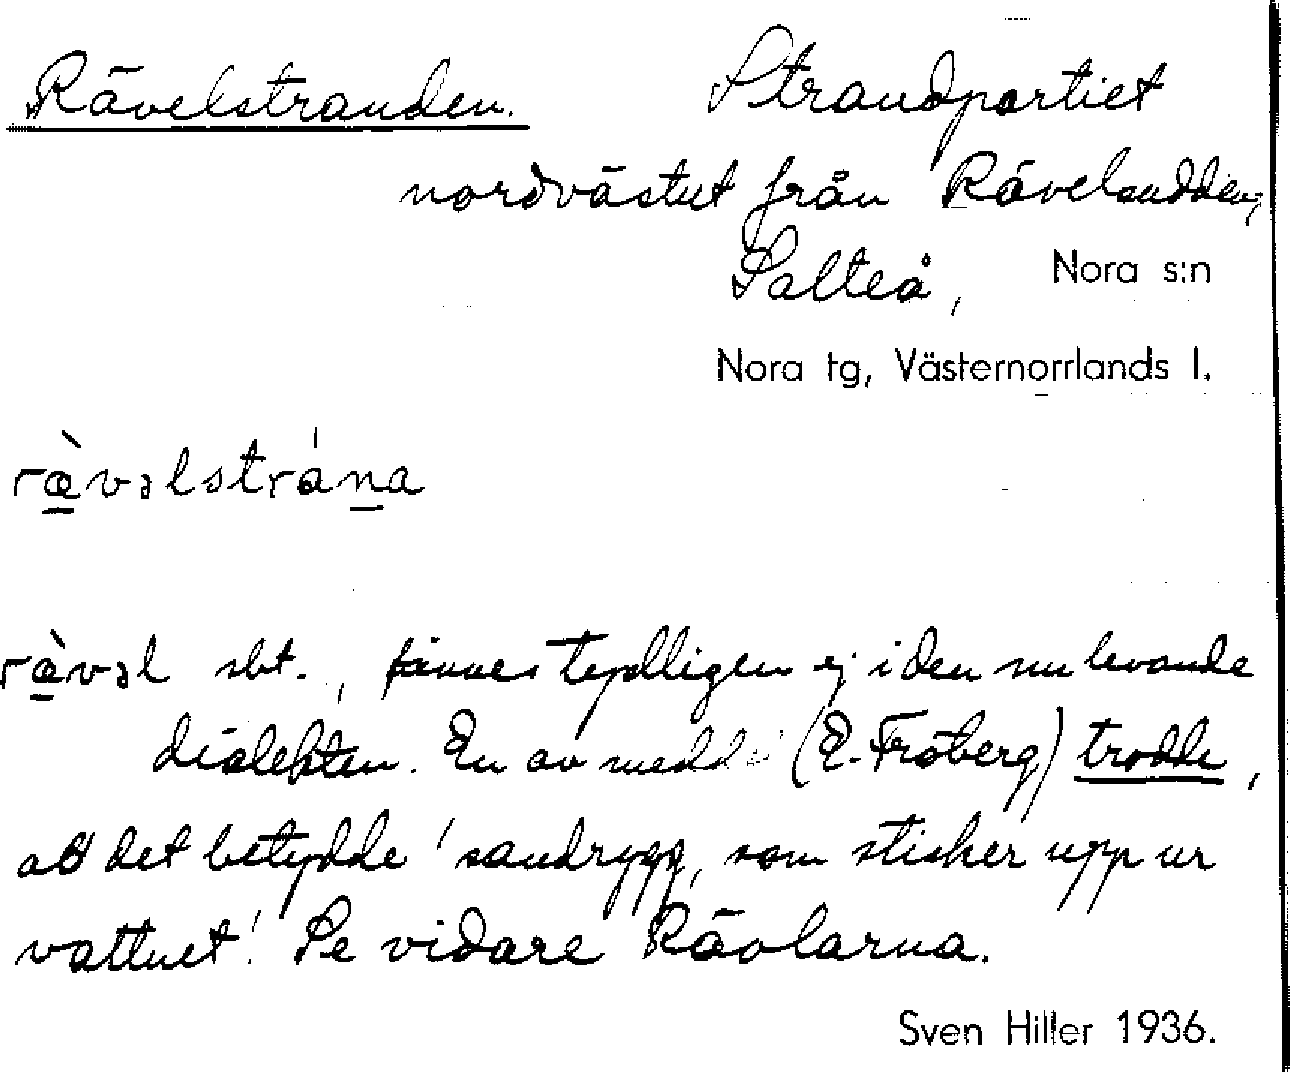 Rävelstranden. Strandpartiet
nordvästut från Rävelsudden,
Salteå, Nora s:n
Nora tg, Västernorrlands l.
ræ̀vəlstrána
ræ̀vəl sbt., finnes tydligen ej i den nu levande
dialekten. En av medd. (E. Fröberg) trodde,
att det betydde 'sandrygg, som sticker upp ur
vattnet'. Se vidare Rävlarna.
Sven Hiller 1936.